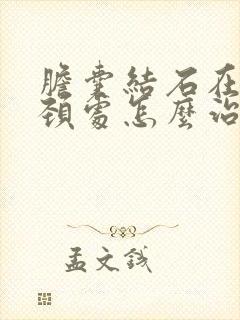 膽囊結石在
頸處怎麼治
孟文錢